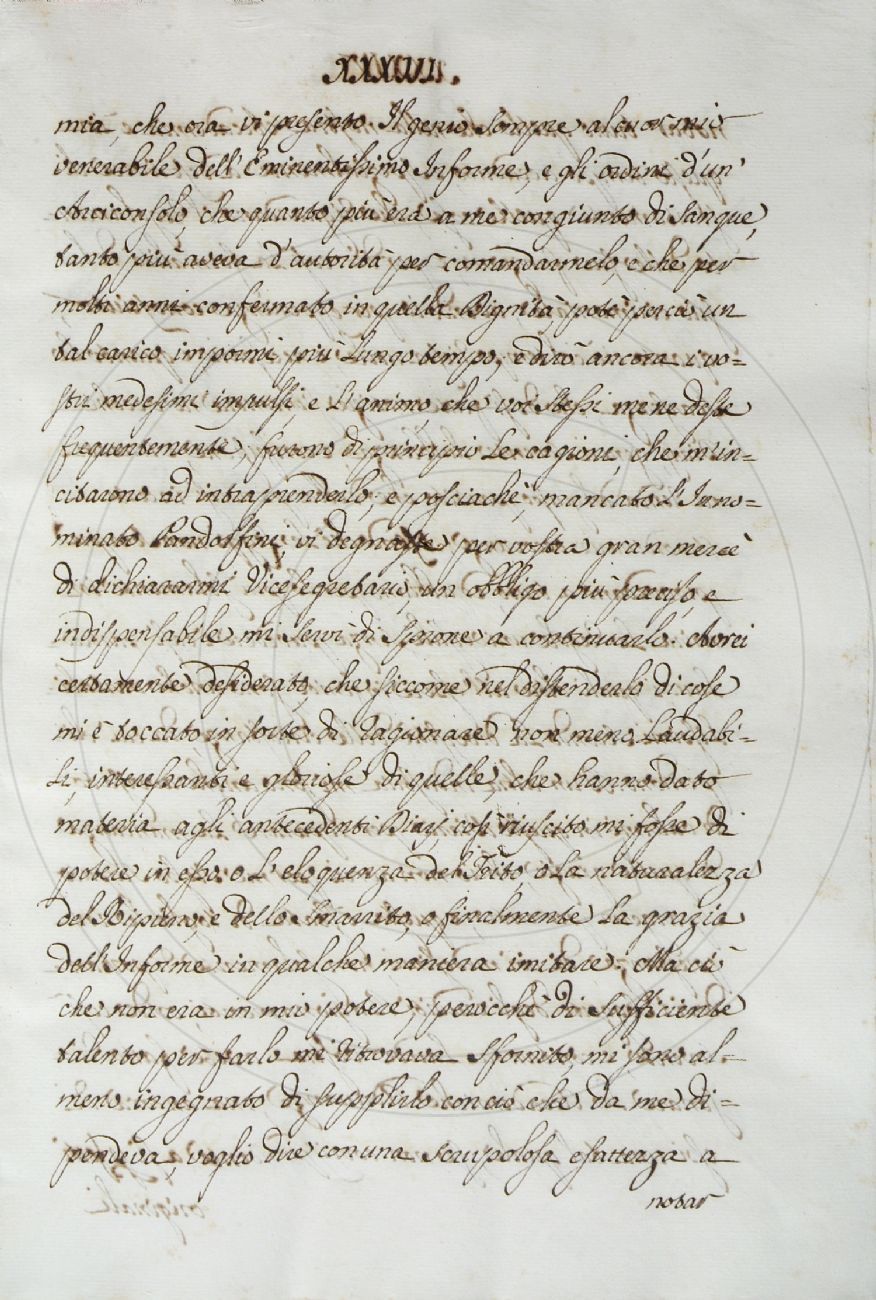 XXXVII.
mia, che ora vi presento. Il genio sempre al cuor mio
venerabile dell'Eminentissimo Informe, e gli ordini d'un'
Arciconsolo, che quanto più era a me congiunto di sangue,
tanto più aveva d'autorità per comandarmelo, e che per
molti anni confermato in quella Dignità potè perciò un
tal carico impormi più lungo tempo, e dirò ancora i vo=
stri medesimi impulsi, e l'animo, che voi stessi me ne deste
frequentemente, furono di principio le cagioni, che m'in=
citarono ad intraprenderlo; e posciachè, mancato l'Inno=
minato Pandolfini, vi degnaste per vostra gran mercè
di dichiararmi Vicesegretario, un obbligo più preciso, e
indispensabile mi servì di sprone a continuarlo. Avrei
certamente desiderato, che siccome nel distenderlo di cose
mi è toccato in sorte di ragionare non meno laudabi=
li, interessanti e gloriose di quelle, che hanno dato
materia agli antecedenti Diarj, così riuscito mi fosse di
potere in esso o l'eloquenza del Trito, o la naturalezza
del Ripieno, e dello Smarrito, o finalmente la grazia
dell'Informe in qualche maniera imitare. Ma ciò
che non era in mio potere, perocchè di sufficiente
talento per farlo mi ritrovava sfornito, mi sono al=
meno ingegnato di supplirlo con ciò che da me di=
pendeva, voglio dire con una scrupolosa esattezza a
notar